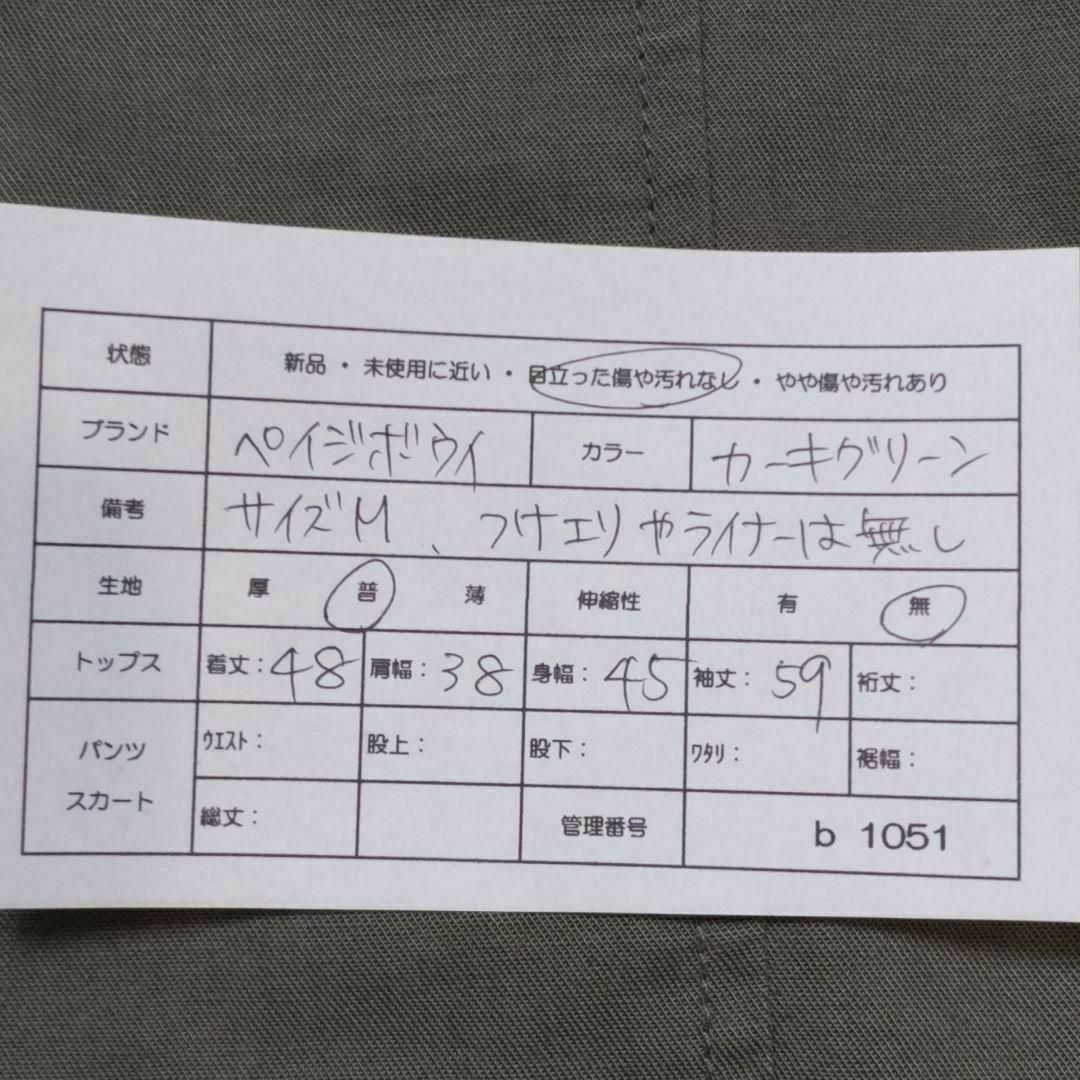 状態 新品・未使用に近い・目立った傷や汚れなし・やや傷や汚れあり
ブランド ペイジボウイ カラー カーキグリーン
備考 サイズM、つけエリやライナーは無し
生地 厚 普 薄 伸縮性 有 無
トップス 着丈:48 肩幅:38 身幅:45 袖丈:59 裄丈:
パンツ スカート ウエスト: 股上: 股下: ワタリ: 裾幅:
総丈: 管理番号 b 1051